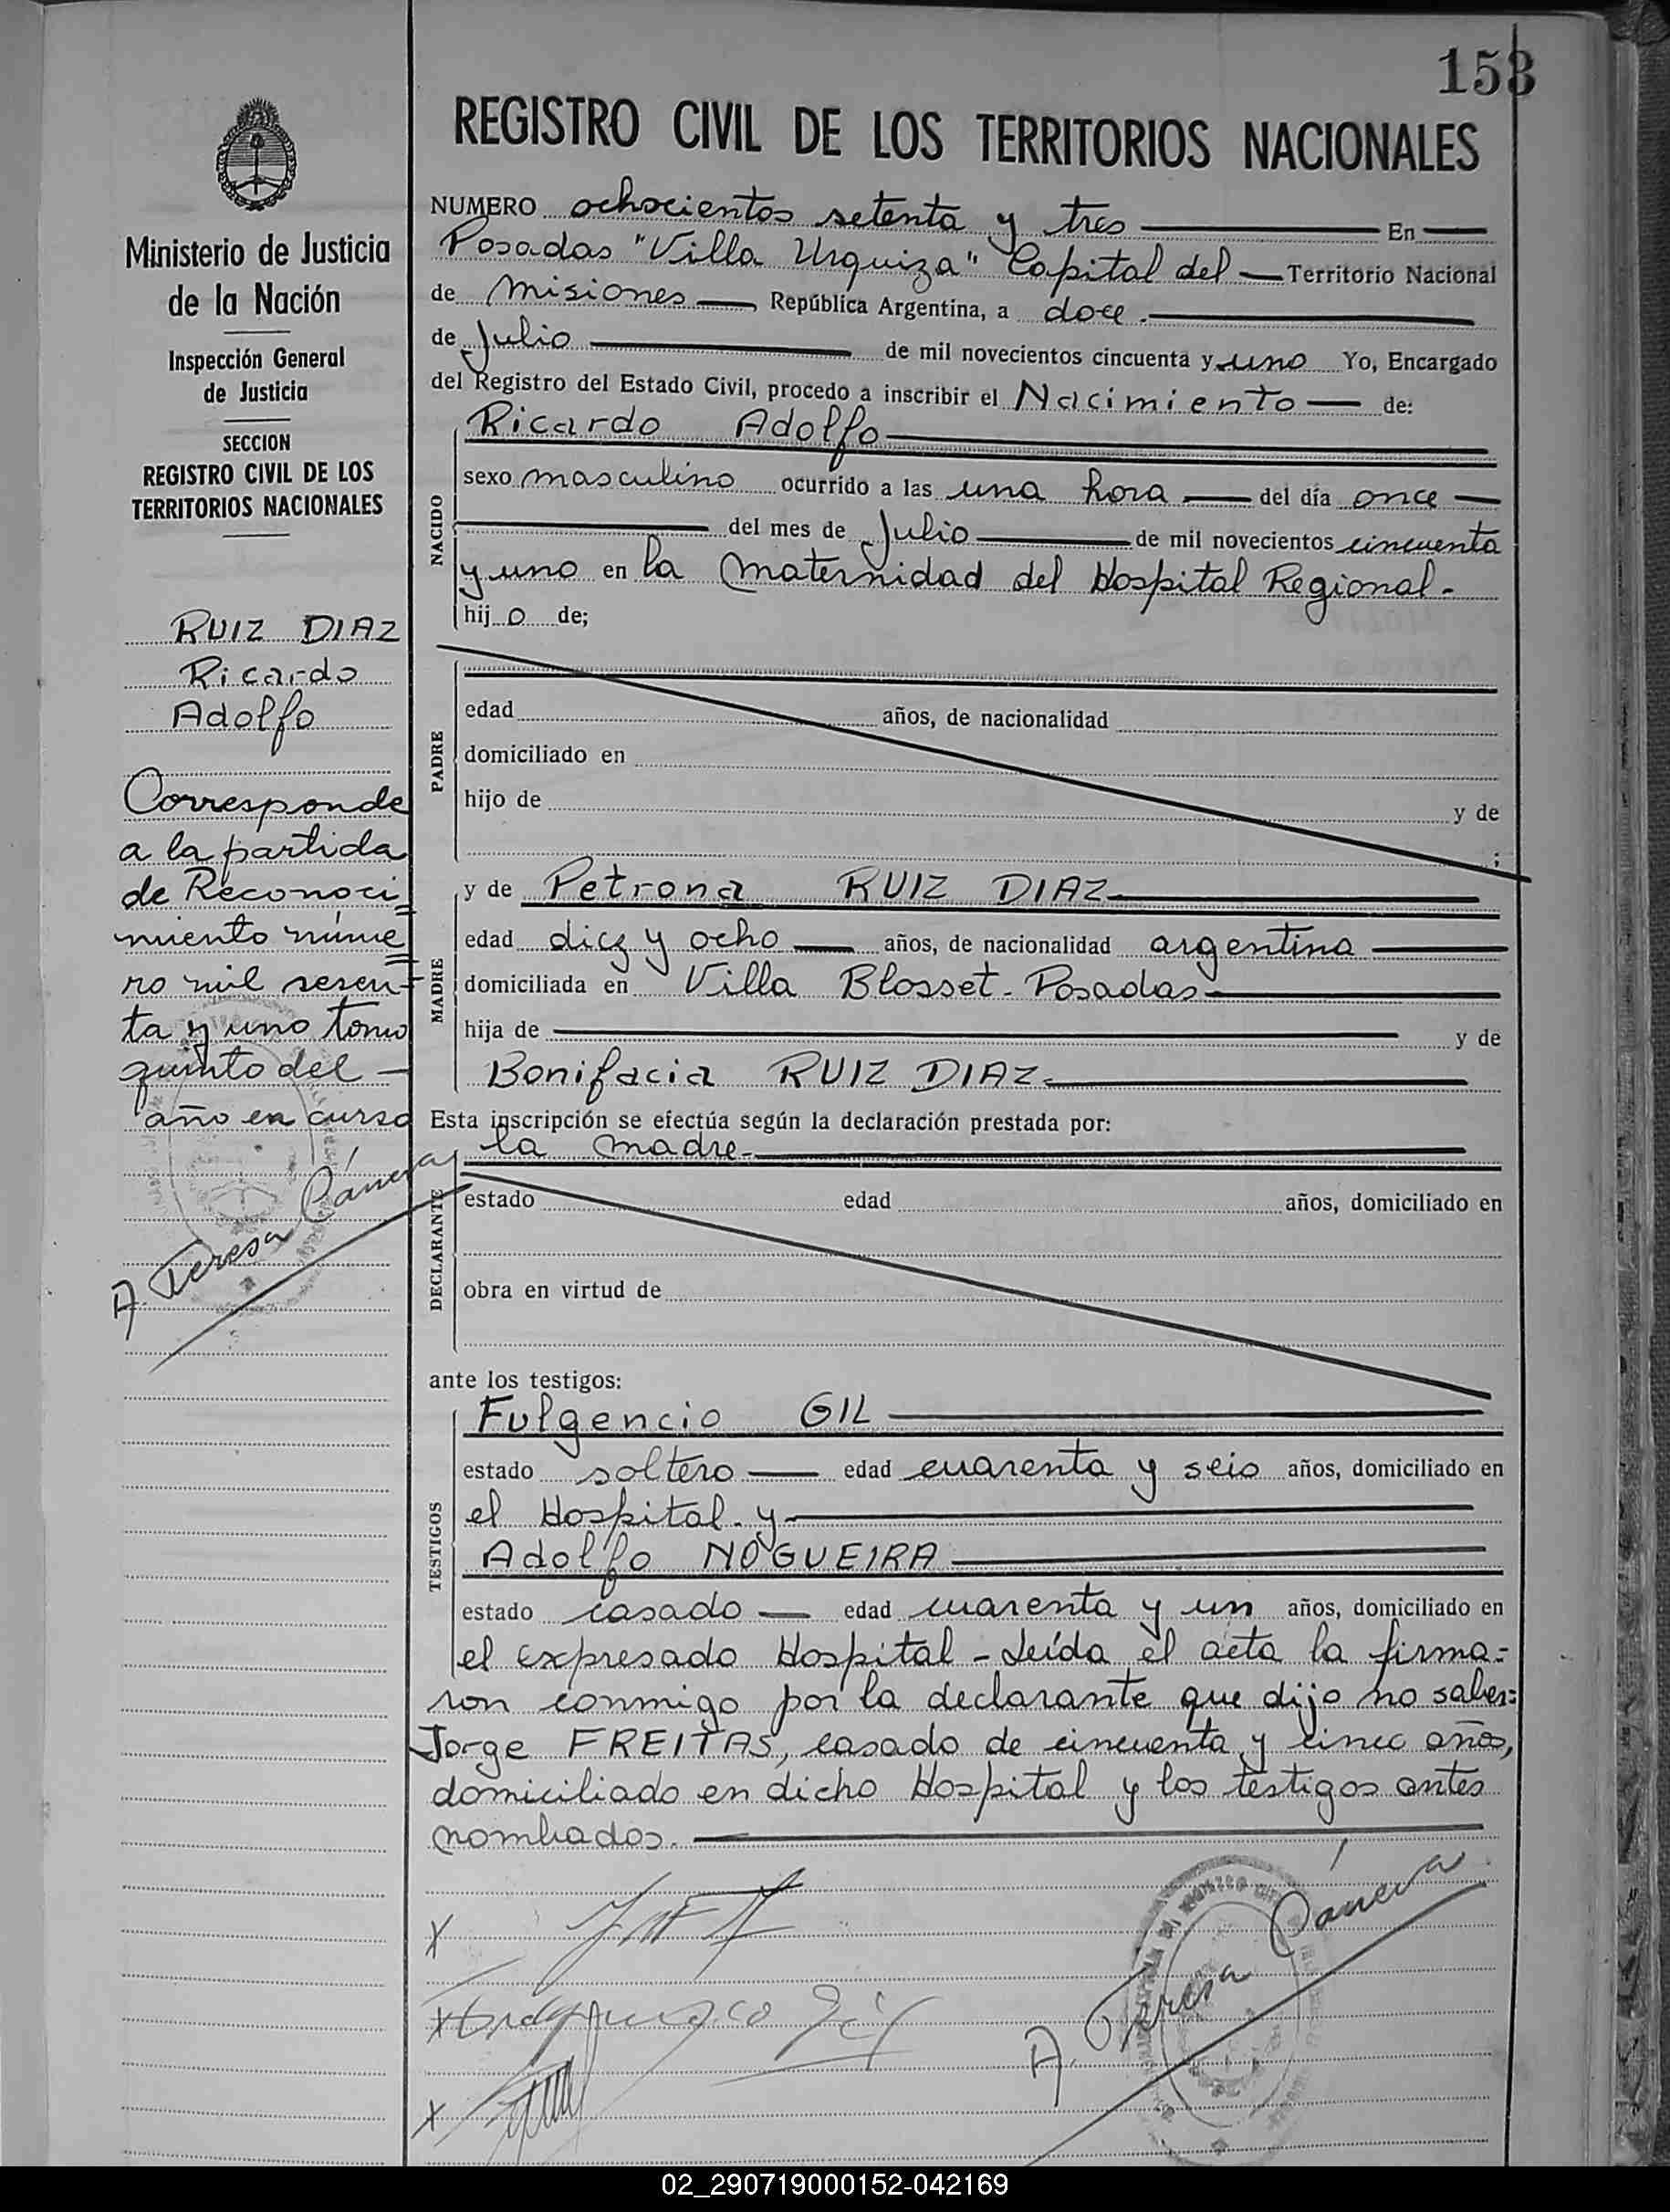 153
REGISTRO CIVIL DE LOS TERRITORIOS NACIONALES
Ministerio de Justicia
de la Nación
Inspección General
de Justicia
SECCION
REGISTRO CIVIL DE LOS
TERRITORIOS NACIONALES
RUIZ DIAZ
Ricardo
Adolfo
Corresponde
a la partida
de Reconoci
miento núme
ro mil sesen
ta y uno tomo
quinto del
año en curso
A. Teresa
NUMERO ochocientos setenta y tres En
Posadas "Villa Urquiza" Capital del Territorio Nacional
de Misiones, República Argentina, a doce.
de Julio de mil novecientos cincuenta y uno Yo, Encargado
del Registro del Estado Civil, procedo a inscribir el Nacimiento de:
NACIDO
Ricardo Adolfo
sexo masculino ocurrido a las una hora del día once
del mes de Julio de mil novecientos cincuenta
y uno en la Maternidad del Hospital Regional.
hijo de;
PADRE
edad años, de nacionalidad
domiciliado en
hijo de y de
;
MADRE
y de Petrona RUIZ DIAZ
edad diez y ocho años, de nacionalidad argentina
domiciliada en Villa Blosset - Posadas
hija de y de
Bonifacia RUIZ DIAZ
Esta inscripción se efectúa según la declaración prestada por:
la madre
DECLARANTE
estado edad años, domiciliado en
obra en virtud de
ante los testigos:
TESTIGOS
Fulgencio GIL
estado soltero edad cuarenta y seis años, domiciliado en
el Hospital y
Adolfo NOGUEIRA
estado casado edad cuarenta y un años, domiciliado en
el expresado Hospital - Leída el acta la firma=
ron conmigo por la declarante que dijo no saber=
Jorge FREITAS, casado de cincuenta y cinco años,
domiciliado en dicho Hospital y los testigos antes
nombados.
Gil
A. Teresa
02_290719000152-042169